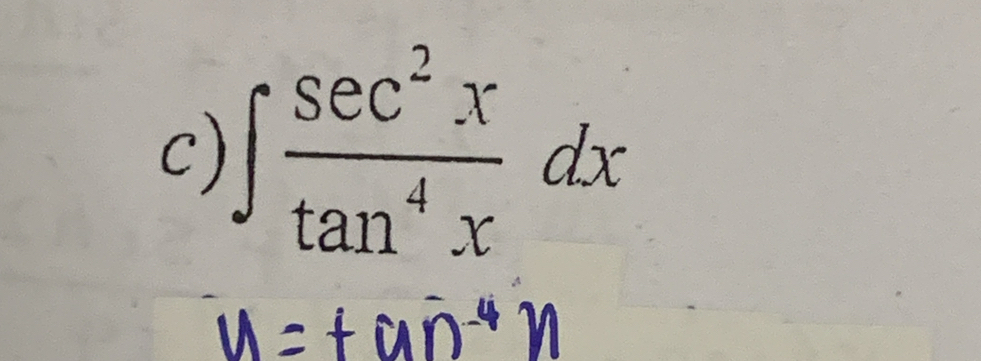 c) ∫ sec² x / tan⁴ x dx
u = tan⁻⁴ x